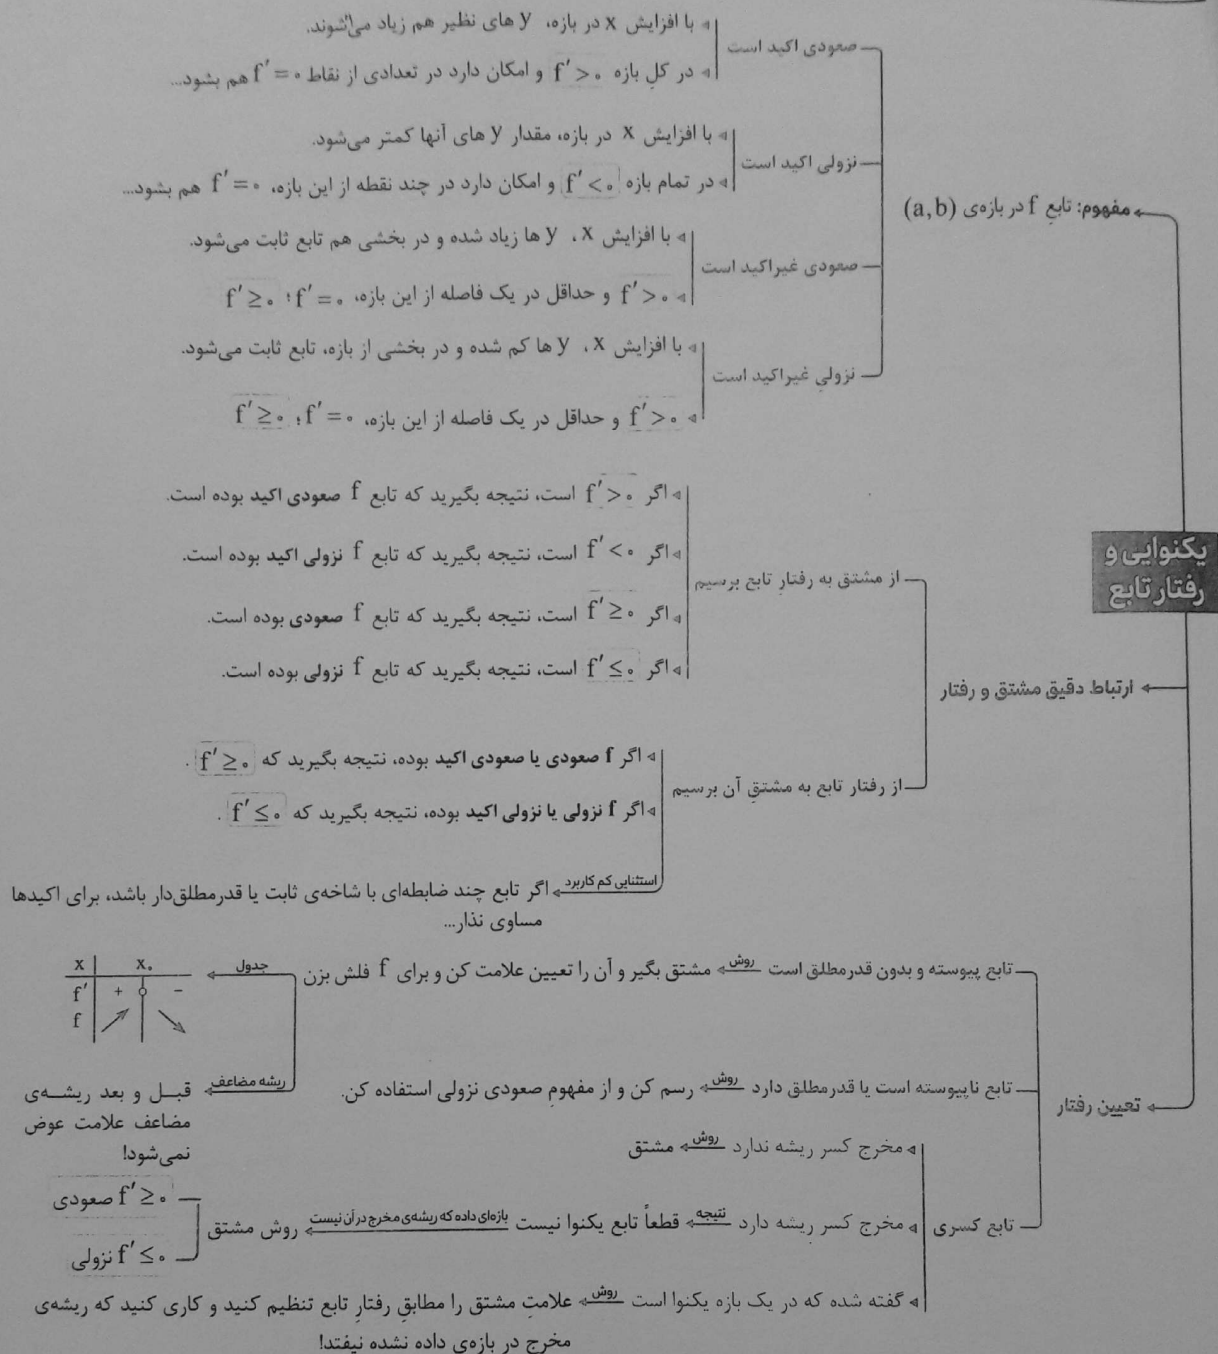 یکنوایی و
رفتار تابع
مفهوم: تابعِ f در بازه‌ی (a,b)
صعودی اکید است
با افزایش x در بازه، y های نظیر هم زیاد می‌شوند.
در کلِ بازه f′>۰ و امکان دارد در تعدادی از نقاط f′=۰ هم بشود...
نزولی اکید است
با افزایش x در بازه، مقدار y های آنها کمتر می‌شود.
در تمام بازه f′<۰ و امکان دارد در چند نقطه از این بازه، f′=۰ هم بشود...
صعودی غیراکید است
با افزایش x، y ها زیاد شده و در بخشی هم تابع ثابت می‌شود.
f′>۰ و حداقل در یک فاصله از این بازه، f′=۰؛ f′≥۰
نزولیِ غیراکید است
با افزایش x، y ها کم شده و در بخشی از بازه، تابع ثابت می‌شود.
f′>۰ و حداقل در یک فاصله از این بازه، f′=۰؛ f′≥۰
ارتباط دقیق مشتق و رفتار
از مشتق به رفتارِ تابع برسیم
اگر f′>۰ است، نتیجه بگیرید که تابع f صعودی اکید بوده است.
اگر f′<۰ است، نتیجه بگیرید که تابع f نزولی اکید بوده است.
اگر f′≥۰ است، نتیجه بگیرید که تابع f صعودی بوده است.
اگر f′≤۰ است، نتیجه بگیرید که تابع f نزولی بوده است.
از رفتار تابع به مشتقِ آن برسیم
اگر f صعودی یا صعودی اکید بوده، نتیجه بگیرید که f′≥۰.
اگر f نزولی یا نزولی اکید بوده، نتیجه بگیرید که f′≤۰.
استثنایی کم کاربرد
اگر تابع چند ضابطه‌ای با شاخه‌ی ثابت یا قدرمطلق‌دار باشد، برای اکیدها
مساوی نذار...
تعیین رفتار
تابع پیوسته و بدون قدرمطلق است روش مشتق بگیر و آن را تعیین علامت کن و برای f فلش بزن
جدول
x x۰
f′ + ۰ −
f
ریشه مضاعف
قبل و بعد ریشه‌ی
مضاعف علامت عوض
نمی‌شود!
تابع ناپیوسته است یا قدرمطلق دارد روش رسم کن و از مفهومِ صعودی نزولی استفاده کن.
تابع کسری
مخرج کسر ریشه ندارد روش مشتق
مخرج کسر ریشه دارد نتیجه قطعاً تابع یکنوا نیست بازه‌ای داده که ریشه‌ی مخرج در آن نیست روش مشتق
f′≥۰ صعودی
f′≤۰ نزولی
گفته شده که در یک بازه یکنوا است روش علامتِ مشتق را مطابقِ رفتارِ تابع تنظیم کنید و کاری کنید که ریشه‌ی
مخرج در بازه‌ی داده نشده نیفتد!